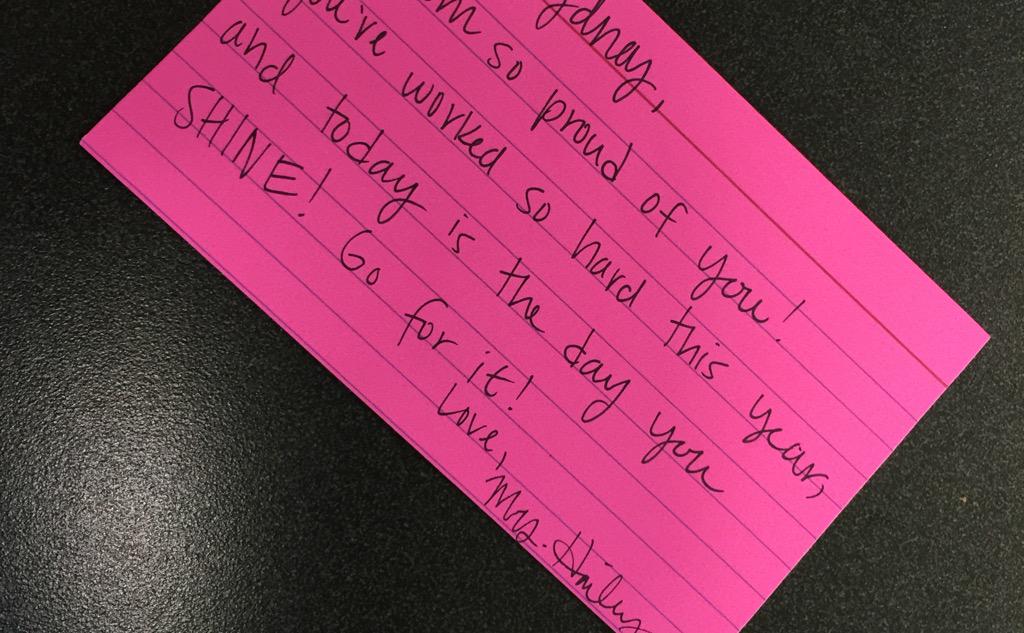 ydney,
am so proud of you!
you've worked so hard this year,
and today is the day you
SHINE! Go for it!
Love,
Mrs. Hailey